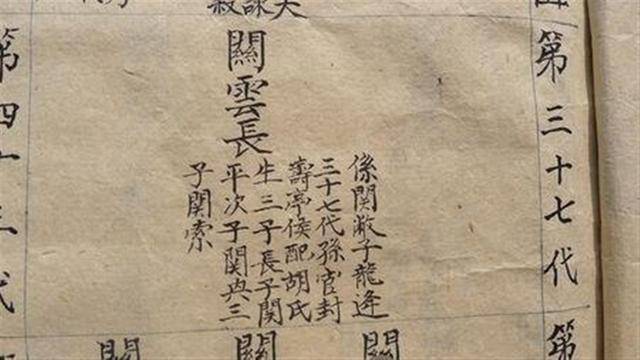 第三十七代
第
關雲長
係関敝子龍逄
三十七代孫官封
壽亭侯配胡氏
生三子長子関
平次子関與三
子関索
關
關
關
第四十三代